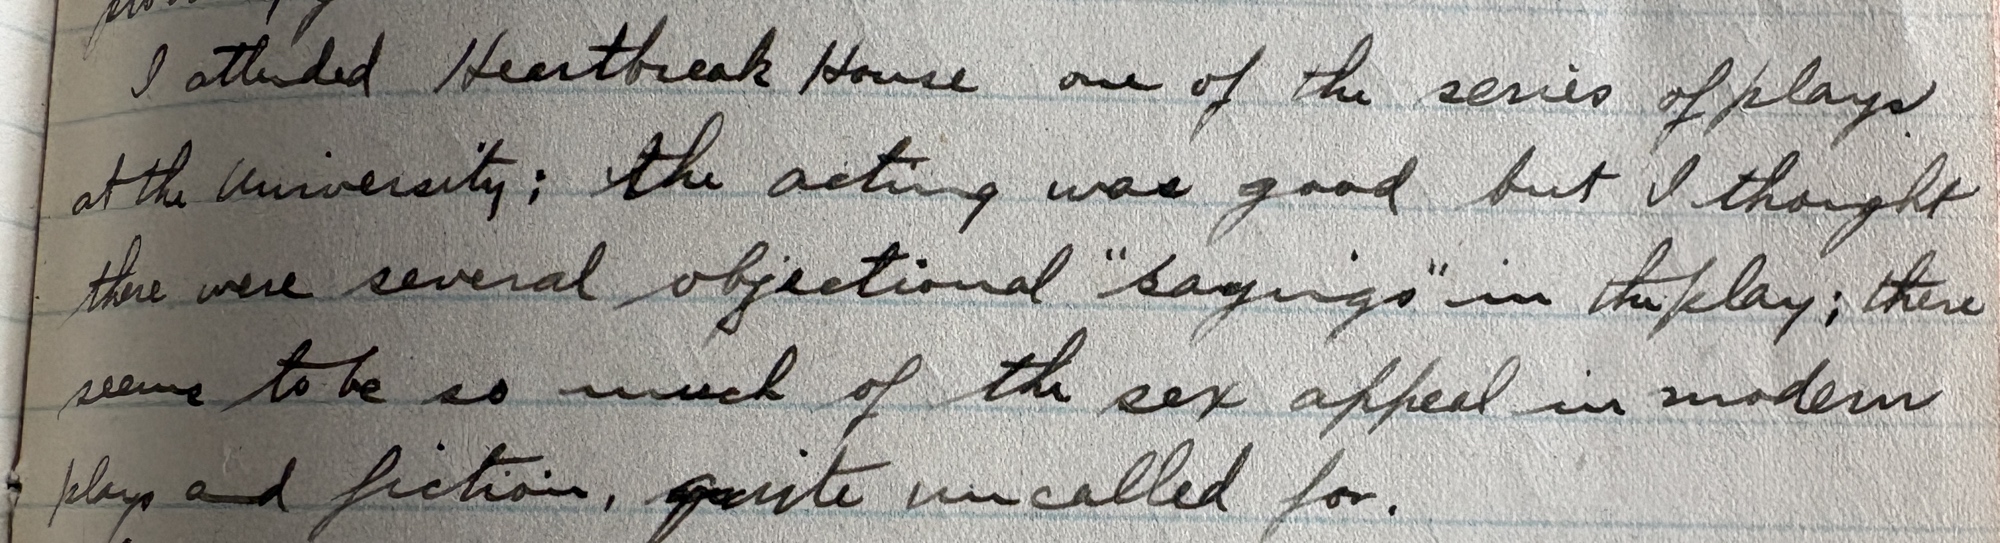 I attended Heartbreak House one of the series of plays
at the University; the acting was good but I thought
there were several objectional "sayings" in the play; there
seems to be so much of the sex appeal in modern
plays and fiction, quite uncalled for.